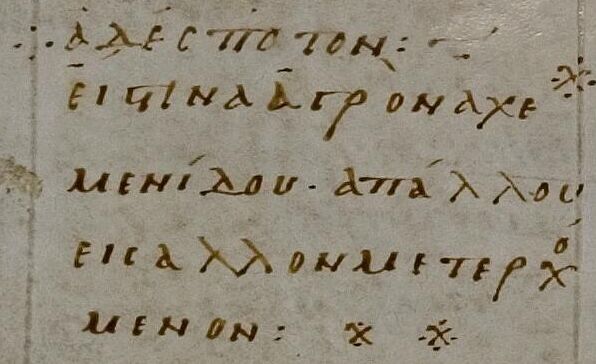 ἀδέσποτον:
εἰς τινα ἀγρὸν ἀχε
μενίδου· ἀπ' ἄλλου
εἰς ἄλλον μετερχό
μενον: